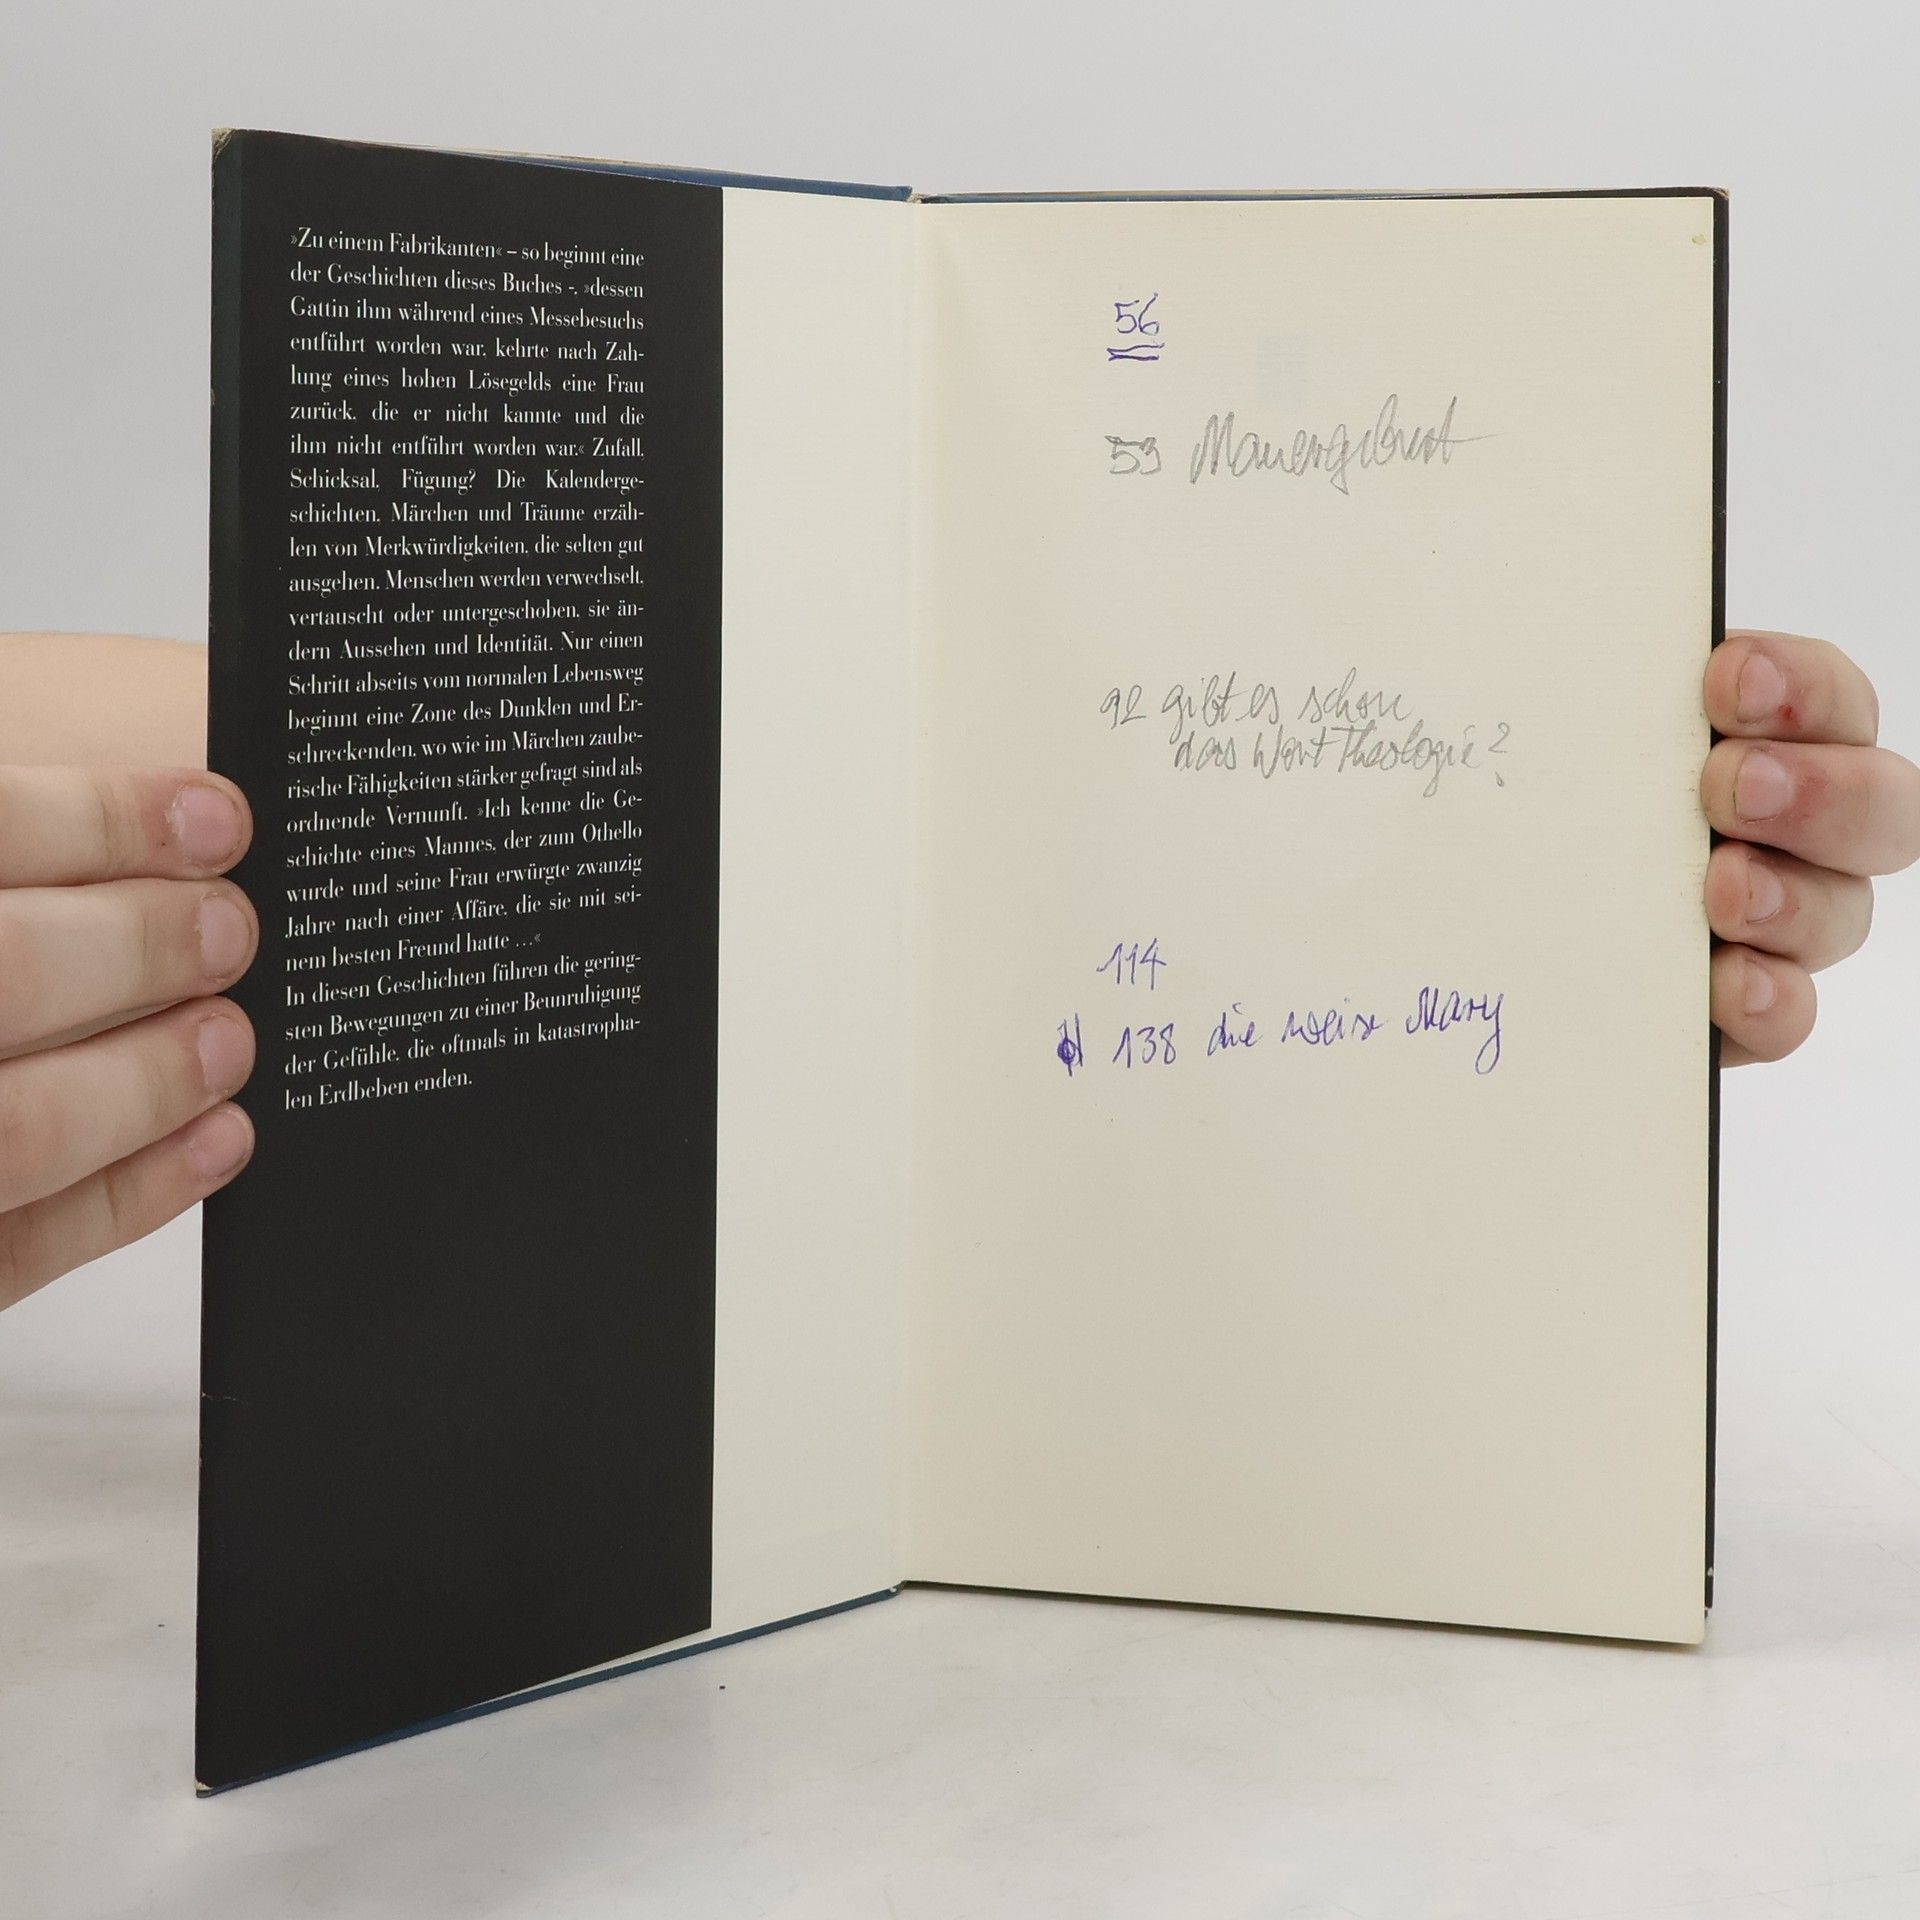 »Zu einem Fabrikanten« – so beginnt eine
der Geschichten dieses Buches -, »dessen
Gattin ihm während eines Messebesuchs
entführt worden war, kehrte nach Zah-
lung eines hohen Lösegelds eine Frau
zurück, die er nicht kannte und die
ihm nicht entführt worden war.« Zufall,
Schicksal, Fügung? Die Kalenderge-
schichten, Märchen und Träume erzäh-
len von Merkwürdigkeiten, die selten gut
ausgehen. Menschen werden verwechselt,
vertauscht oder untergeschoben, sie än-
dern Aussehen und Identität. Nur einen
Schritt abseits vom normalen Lebensweg
beginnt eine Zone des Dunklen und Er-
schreckenden, wo wie im Märchen zaube-
rische Fähigkeiten stärker gefragt sind als
ordnende Vernunft. »Ich kenne die Ge-
schichte eines Mannes, der zum Othello
wurde und seine Frau erwürgte zwanzig
Jahre nach einer Affäre, die sie mit sei-
nem besten Freund hatte ...«
In diesen Geschichten führen die gering-
sten Bewegungen zu einer Beunruhigung
der Gefühle, die oftmals in katastropha-
len Erdbeben enden.
56
53
92 gibt es schon
das Wort Theologie?
114
138 die weise Mary